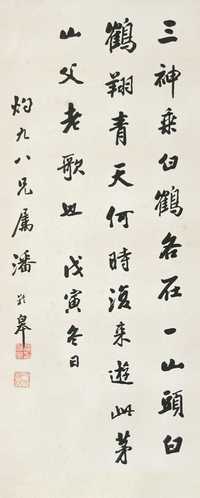 三神乘白鶴各在一山頭白
鶴翔青天何時復來遊此茅
山父老歌也 戊寅冬日
灼九八兄屬 潘齡皋